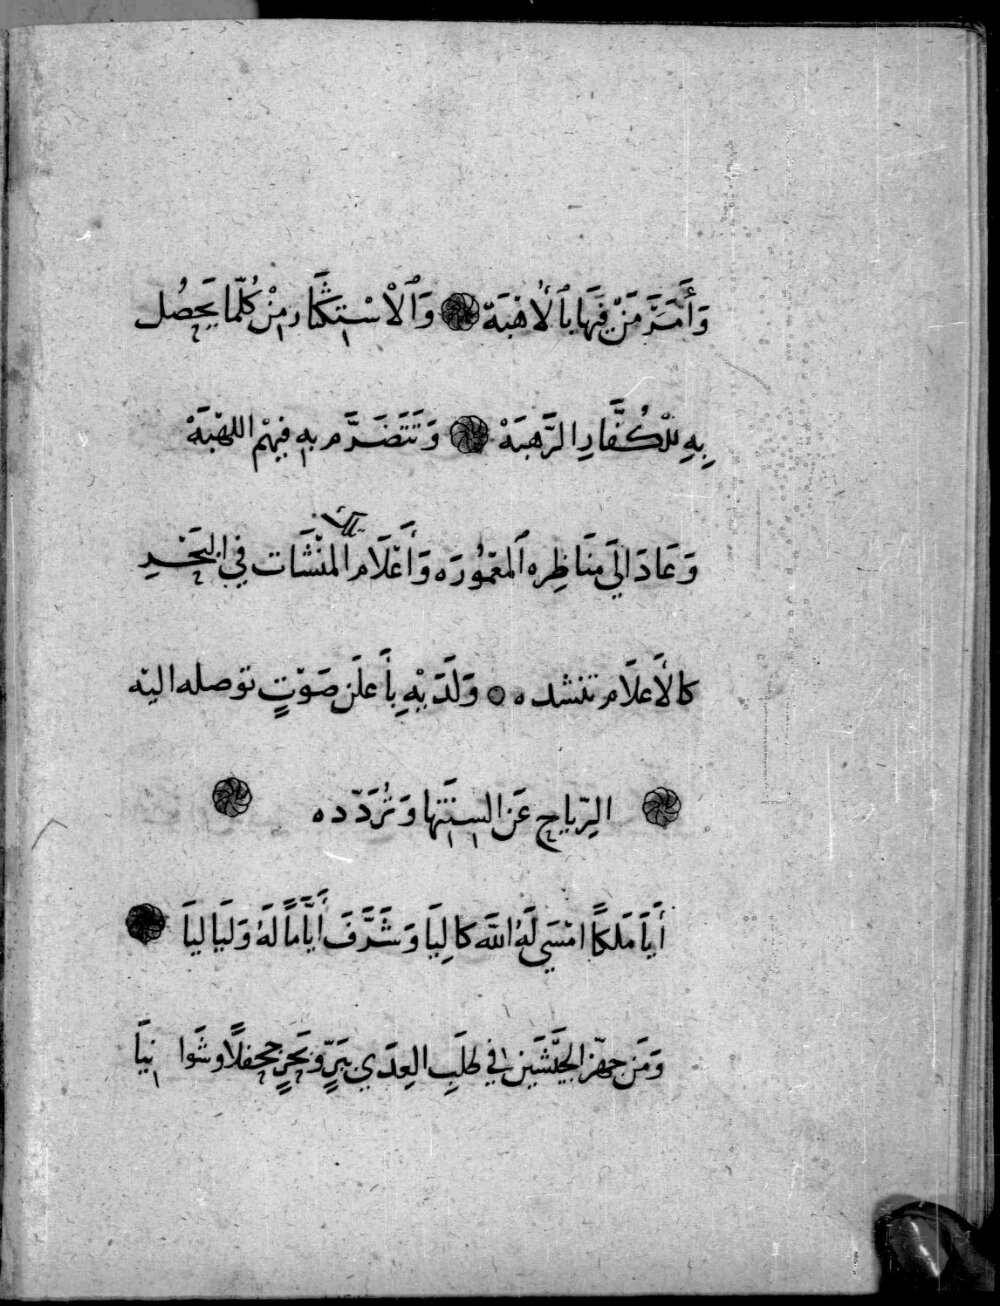 وَأَمَرَ مَنْ فِيهَا بِالأُهْبَة وَالْاسْتِكثَار مِنْ كُلّمَا يَحصُل
بِهِ لِلْكُفَّارِ الرَّهبَةْ وَتَتَضَرَّم بِهِ فِيهِمْ اللهْبَةْ
وَعَادَ الَي مَنَاظِرِه المعْمُورَه وَأَعْلَام الْمنْشَآت فِي البَحْرِ
كالأَعلَام تنشده وَلَدَيْهِ بِأَعلَن صَوْتٍ توْصله اليْه
الرِّيَاح عَن السِنَتهَا وَتُرَدّده
أَيَا مَلكاً امْسَي لَهُ اللَّه كالِيَا وَشَرَّفَ أَيَّامًا لَهُ وَلَيَاليَا
وَمَن جهّز الجَيْشَين في طلَبِ العِدَي بِبَرٍّ وبَحرٍ جحفلًا وشَوانيَا